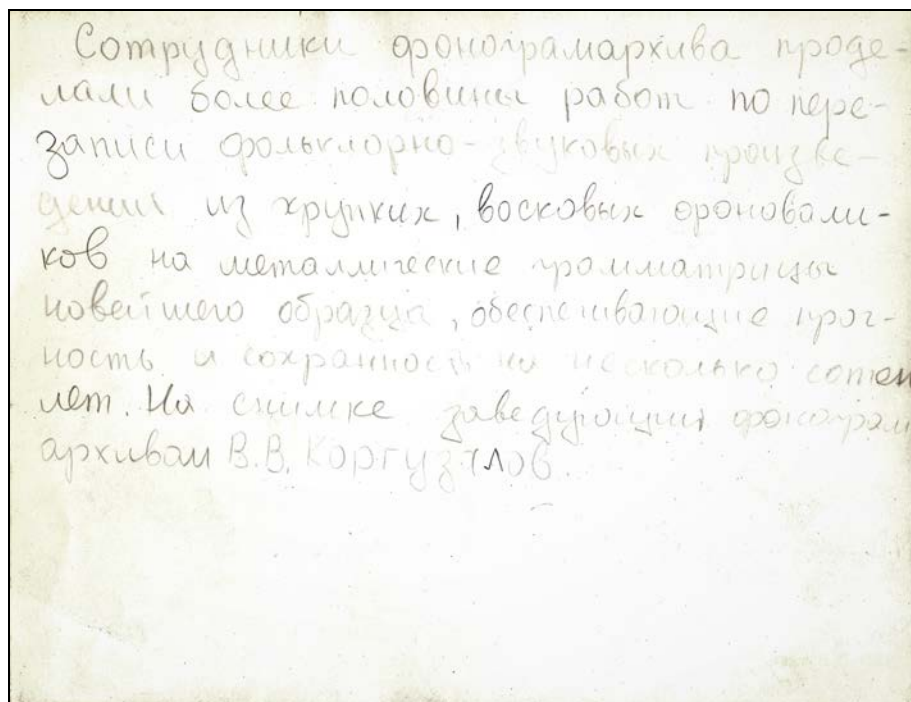 Сотрудники фонограмархива проде-
лали более половины работ по пере-
записи фольклорно-звуковых произве-
дений из хрупких, восковых фоновали-
ков на металлические грамматрицы
новейшего образца, обеспечивающие проч-
ность и сохранность на несколько сотен
лет. На снимке заведующий фонограм
архивом В.В. Коргузалов.